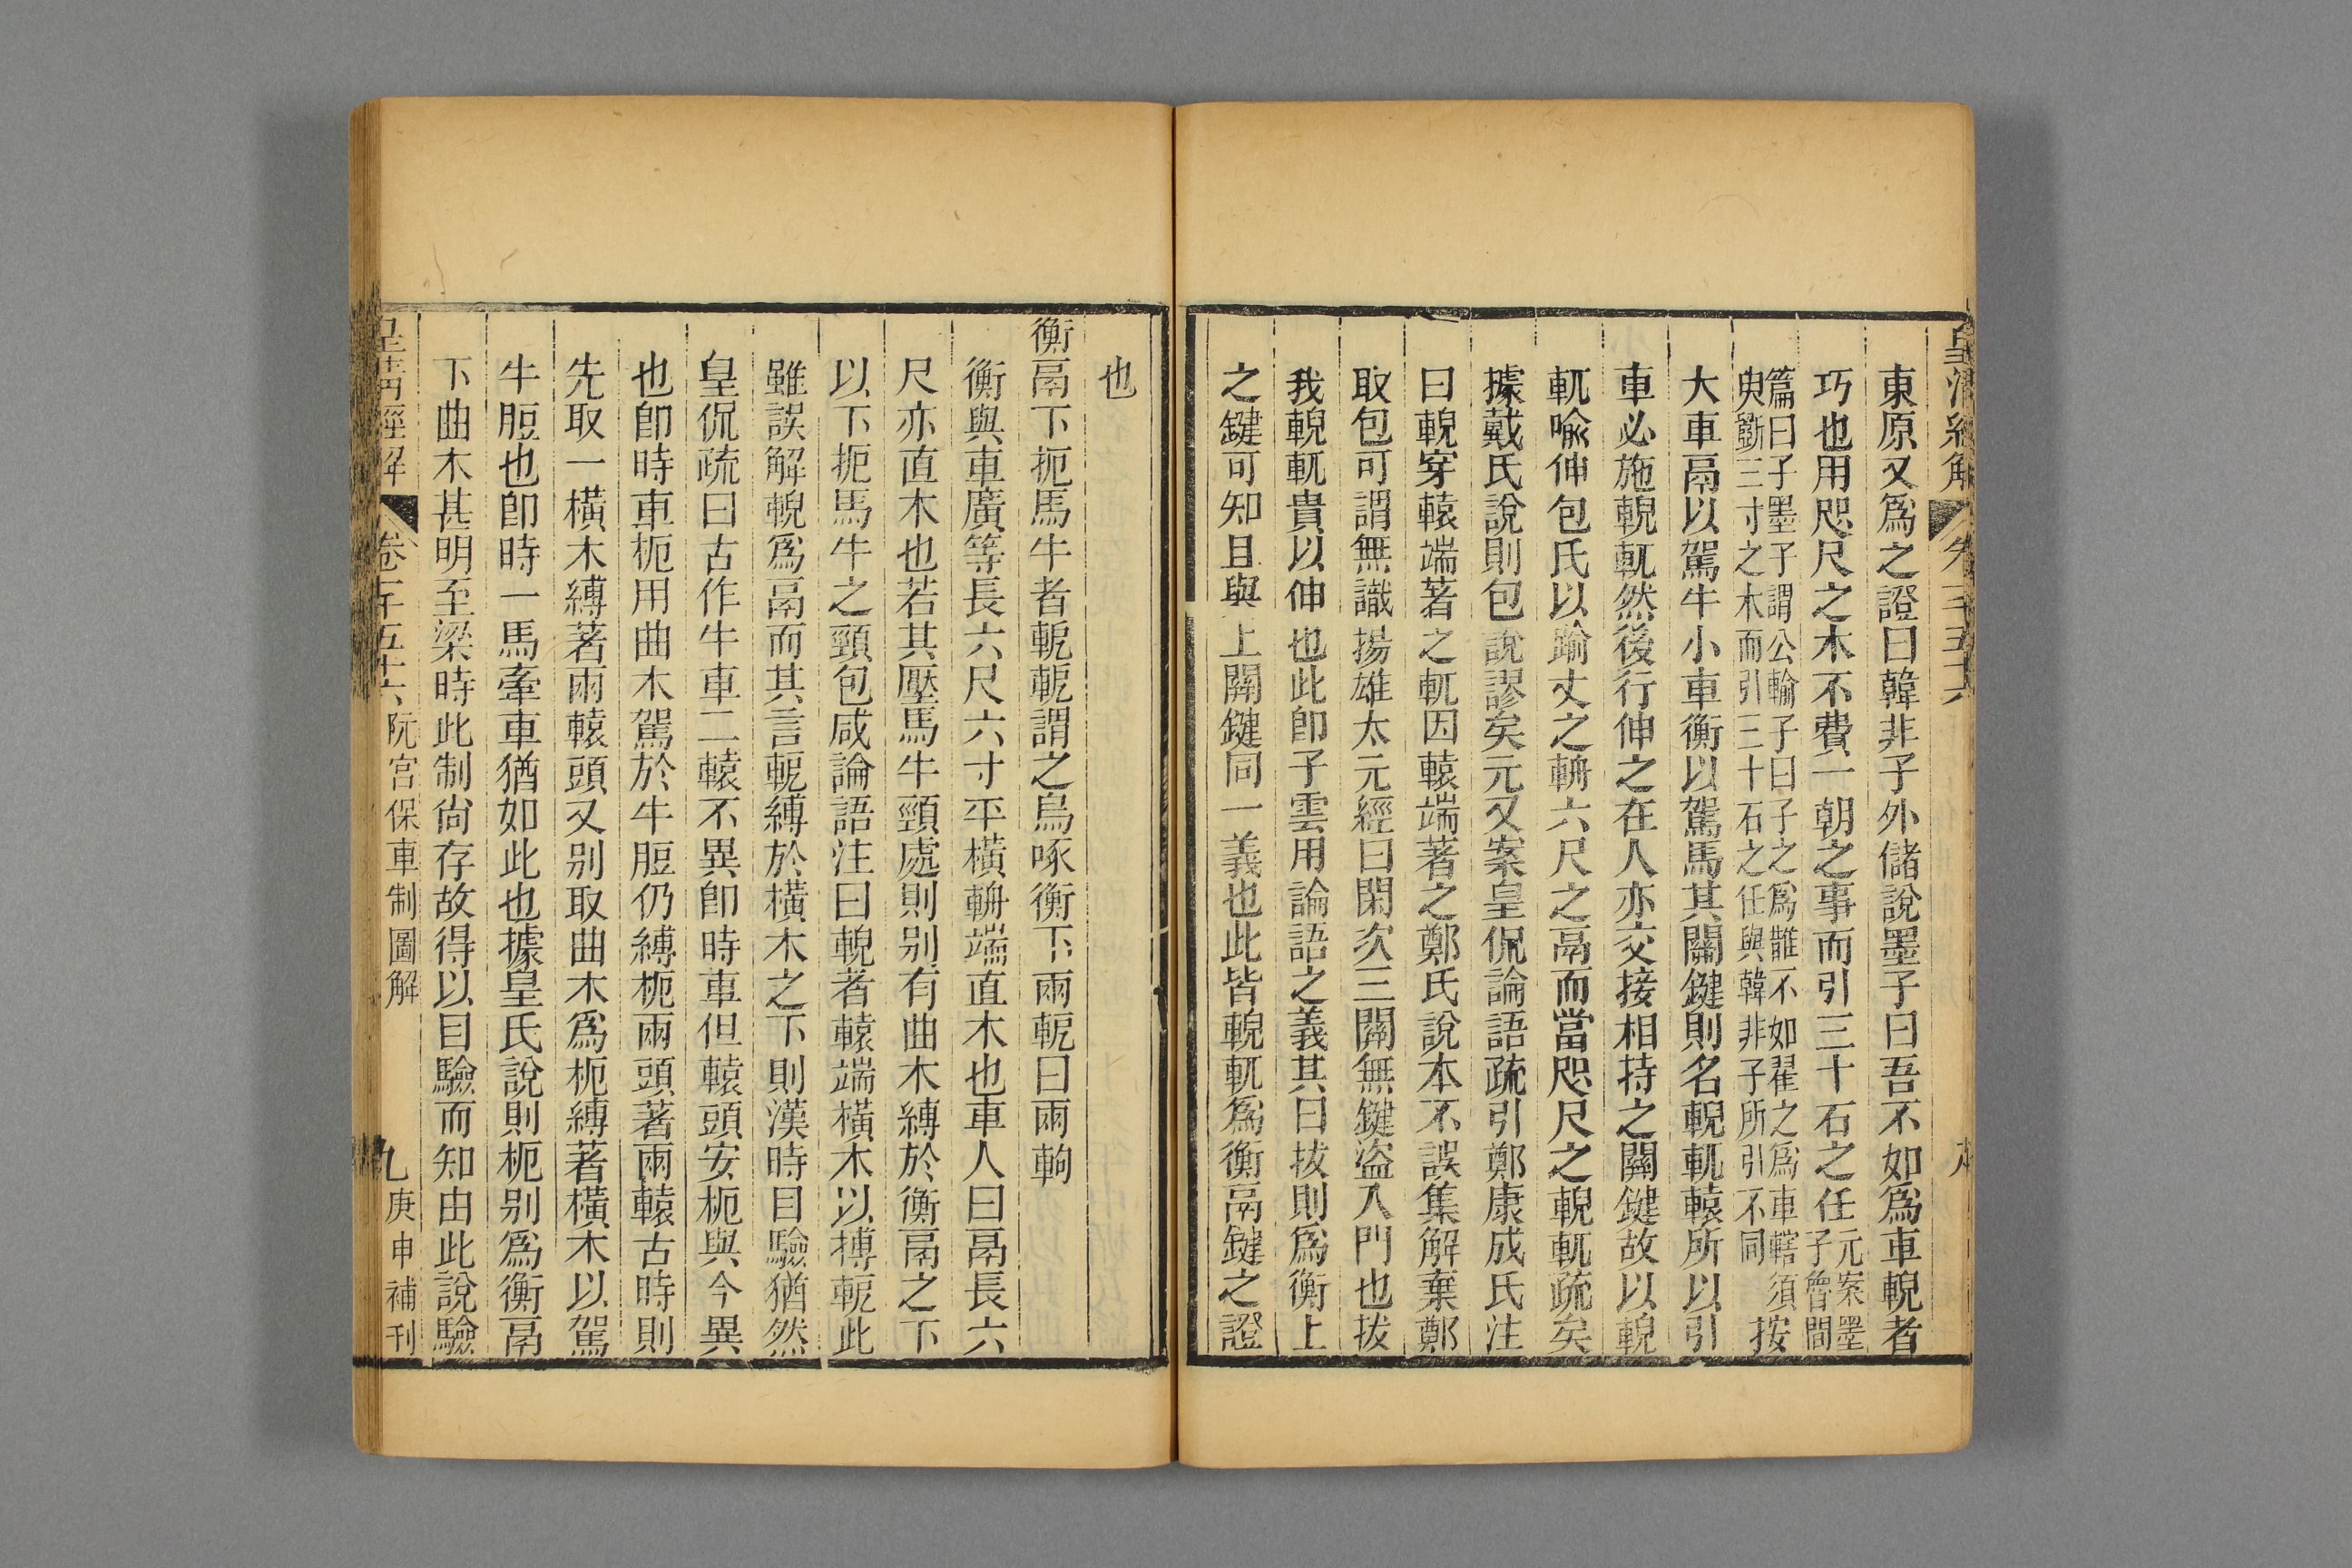 東原又爲之證曰韓非子外儲說墨子曰吾不如爲車輗者
巧也用咫尺之木不費一朝之事而引三十石之任元案墨子魯問
篇曰子墨子謂公輸子曰子之爲䧿不如翟之爲車轄須
臾斲三寸之木而引三十石之任與韓非子所引不同按
大車鬲以駕牛小車衡以駕馬其關鍵則名輗軏轅所以引
車必施輗軏然後行伸之在人亦交接相持之關鍵故以輗
軏喻伸包氏以踰丈之輈六尺之鬲而當咫尺之輗軏疏矣
據戴氏說則包說謬矣元又案皇侃論語疏引鄭康成氏注
曰輗穿轅端著之軏因轅端著之鄭氏說本不誤集解棄鄭
取包可謂無識揚雄太元經曰閑次三關無鍵盜入門也拔
我輗軏貴以伸也此卽子雲用論語之義其曰拔則爲衡上
之鍵可知且與上關鍵同一義也此皆輗軏爲衡鬲鍵之證
也
衡鬲下扼馬牛者軶軶謂之烏啄衡下兩軶曰兩軥
衡與車廣等長六尺六寸平橫輈端直木也車人曰鬲長六
尺亦直木也若其壓馬牛頸處則别有曲木縛於衡鬲之下
以下扼馬牛之頸包咸論語注曰輗者轅端橫木以搏軶此
雖誤解輗爲鬲而其言軶縛於橫木之下則漢時目驗猶然
皇侃疏曰古作牛車二轅不異卽時車但轅頭安枙與今異
也卽時車枙用曲木駕於牛脰仍縛枙兩頭著兩轅古時則
先取一橫木縛著兩轅頭又别取曲木爲枙縛著橫木以駕
牛脰也卽時一馬牽車猶如此也據皇氏說則枙别爲衡鬲
下曲木甚明至梁時此制尙存故得以目驗而知由此說驗
皇淸經解 卷千五十六 阮宮保車制圖解 九 庚申補刊